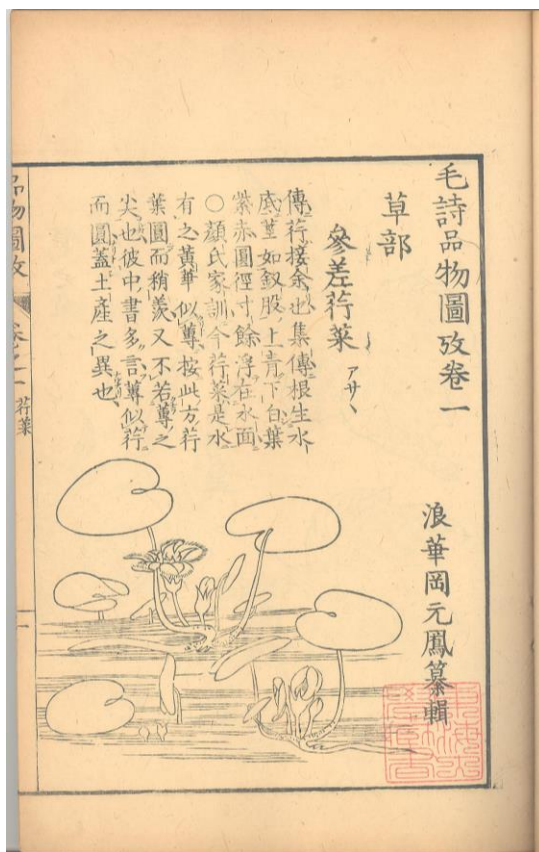 毛詩品物圖攷卷一
浪華岡元鳳纂輯
草部
參差荇菜 アサヽ
傳荇接余也集傳根生水
底莖如釵股上青下白葉
紫赤圓徑寸餘浮在水面
○顔氏家訓今荇菜是水
有之黃華似蓴按此方荇
葉圓而稍羨又不若蓴之
尖也彼中書多言蓴似荇
而圓蓋土產之異也
品物圖攷
卷之一
荇菜
一